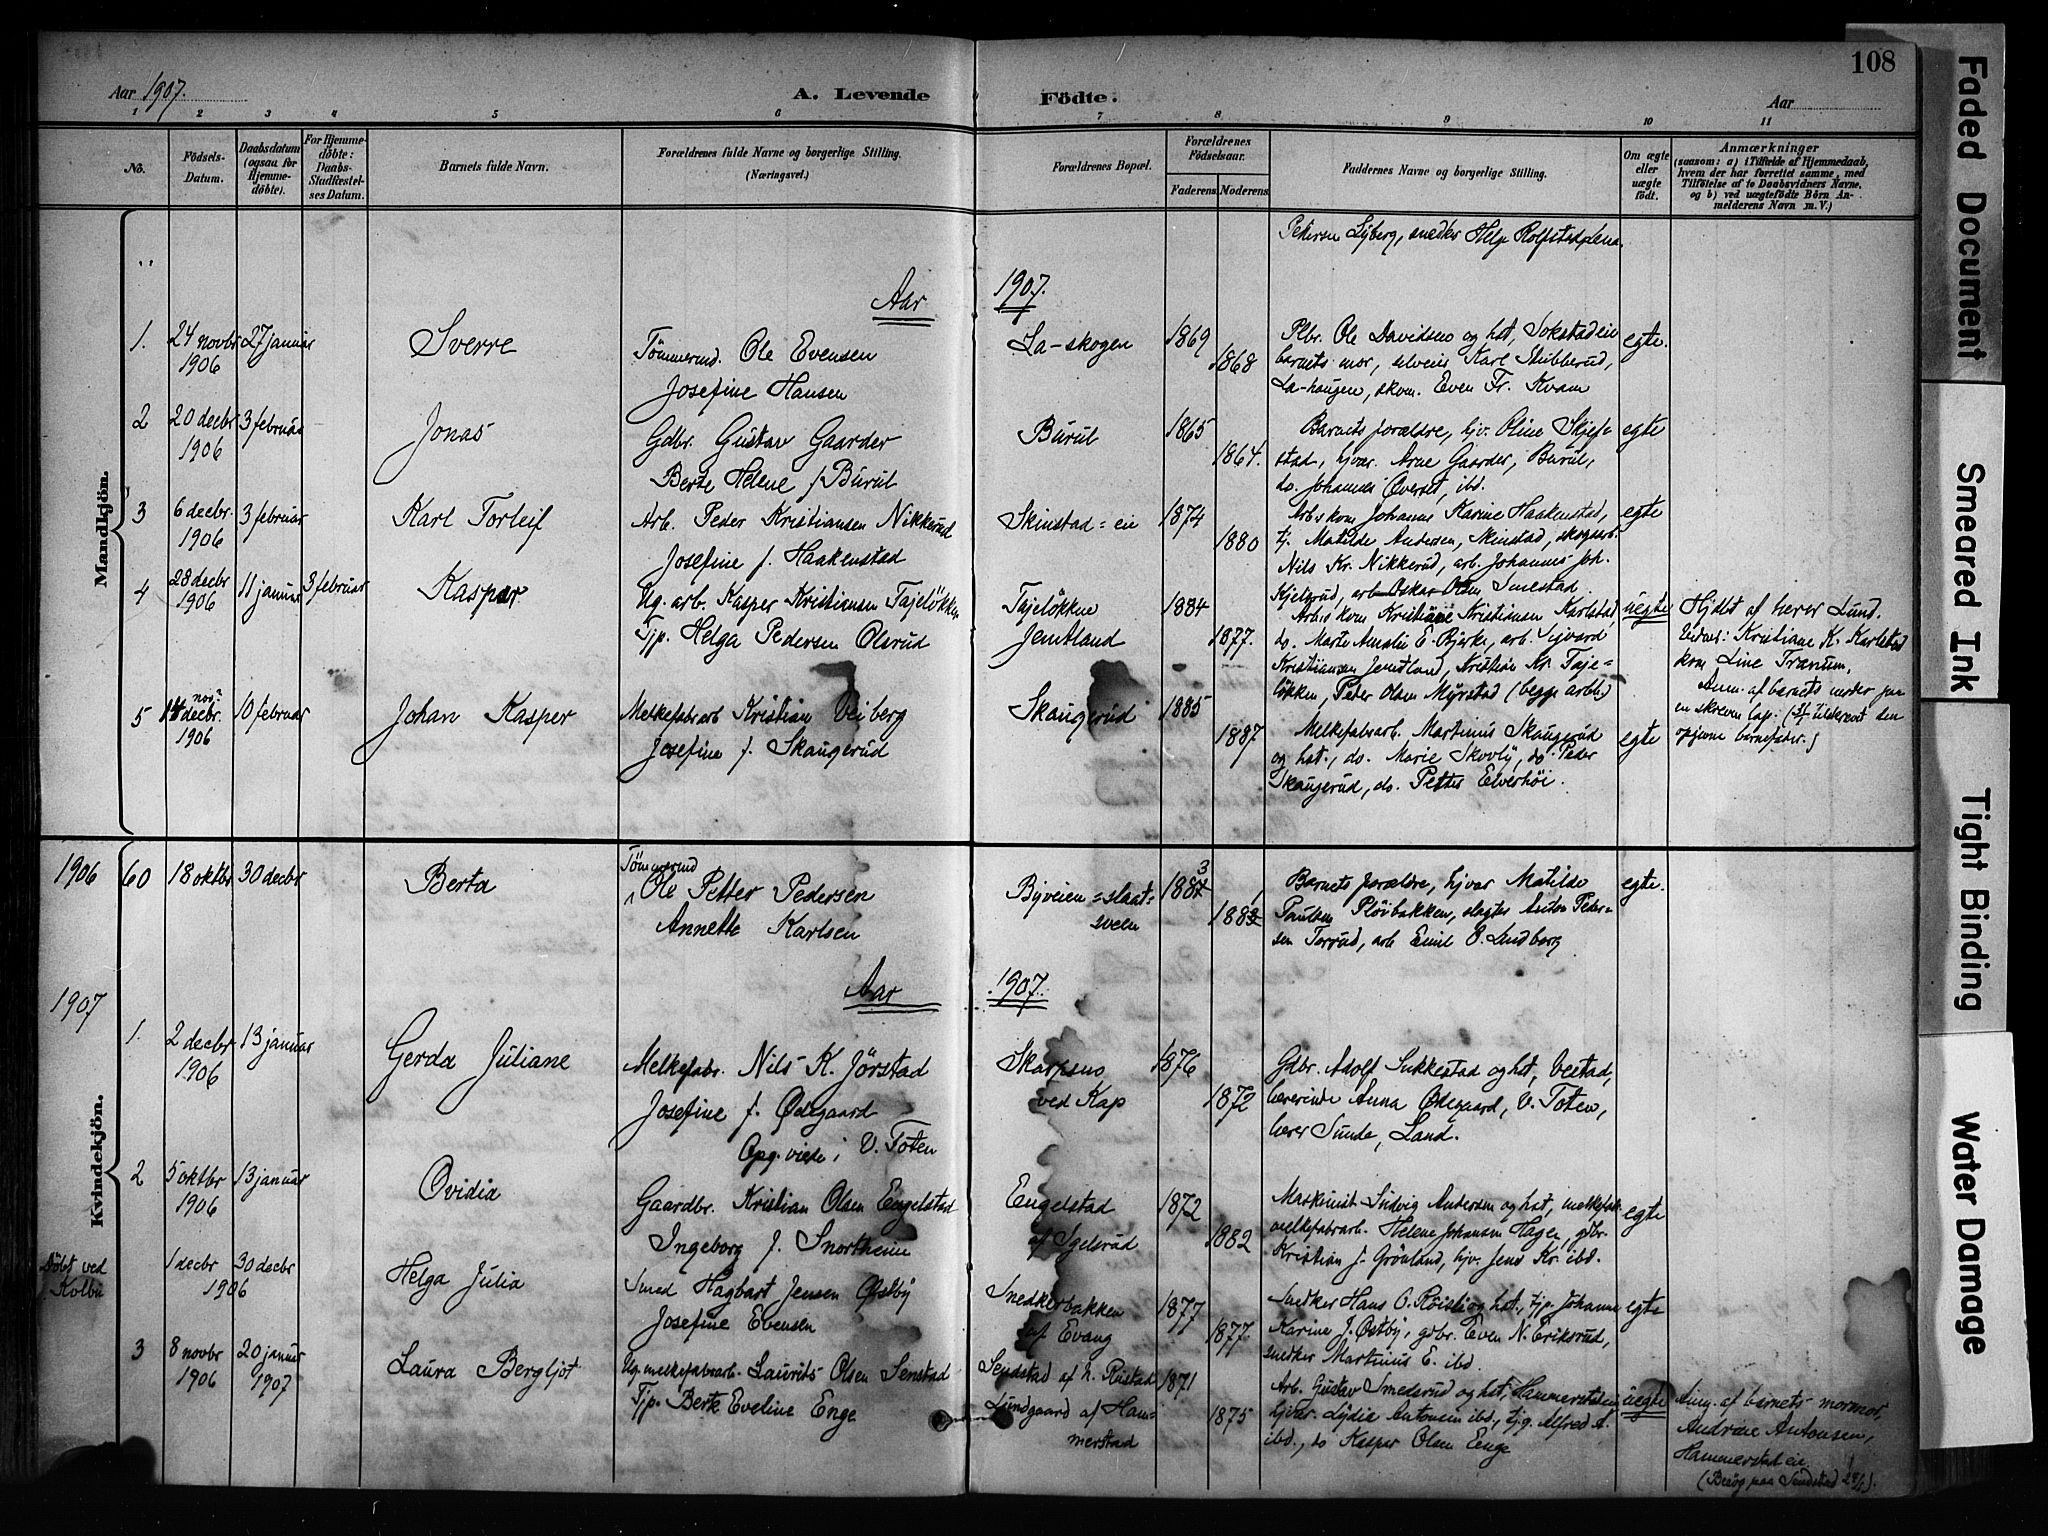 108
Aar 1907.
A. Levende Födte.
Aar
1 2 3 4 5 6 7 8 9 10 11
No.
Födsels-Datum.
Daabsdatum (ogsaa for Hjemmedöbte).
For Hjemmedöbte: Daabs-Stadfæstelses Datum.
Barnets fulde Navn.
Forældrenes fulde Navne og borgerlige Stilling. (Næringsvei.)
Forældrenes Bopæl.
Forældrenes Födselsaar.
Faderens. Moderens.
Faddernes Navne og borgerlige Stilling.
Om ægte eller uægte födt.
Anmærkninger
(saasom: a) i Tilfælde af Hjemmedaab, hvem der har forrettet samme, med Tilföielse af to Daabsvidners Navne, og b) ved uægtefödte Börn Anmelderens Navn m. V.)
Petersen Lyberg, snedker Helge Rolfstad, Lena.
Mandkjön.
Aar 1907.
1. 24 novbr 1906 27 januar Sverre
Tömmermd. Ole Evensen
Josefine Hansen
La-skogen 1869 1868
Plbr. Ole Davidsen og hst, Sokstadeie
barnets mor, Karl Stubberud,
La-haugen, skom. Even Fr. Kvam
egte.
2 20 decbr 1906 3 februar Jonas
Gdbr. Gustav Gaarder
Berte Helene f. Burul
Burul 1865 1864.
Barnets forældre, hjv. Oline Skjef-
stad, hjvær. Arne Gaarder, Burul,
do. Johannes Överset, ibd.
egte
3 6 decbr. 1906 3 februar Karl Torleif
Arb. Peder Kristiansen Nikkerud
Josefine f. Haakenstad
Skinstad=eie 1874 1880
Arbskom Johanne Karine Haakenstad,
tj. Matilde Andersen, Skinstad, skogsarb.
Nils Kr. Nikkerud, arb. Johannes Joh.
Kjelsrud, arb Oskar Olsen Smestad.
egte
4 28 decbr 1906 11 januar 3 februar Kasper
Ug. arb. Kasper Kristiansen Tajelökken
Tjp. Helga Pedersen Olsrud
Tajelökken
Jemtland
1884 1877.
Arbskom Kristiane Kristiansen Karlstad,
do. Marte Amalie E. Bjerke, arb. Sigvard
Kristiansen Jemtland, Kristian Kr. Taje-
lökken, Peter Olsen Myrstad (begge arb.)
uegte
Hjdbt af lærer Lund.
Vidner: Kristiane K. Karlstad
kone Line Tranum.
Anm. af barnets moder paa
en skreven lap.
5 14 novbr. decbr. 1906 10 februar Johan Kasper
Melkefabarb Kristian Veiberg
Josefine f. Skaugerud
Skaugerud 1885 1887
Melkefabarb. Martinius Skaugerud
og hst., do. Marie Skovly, do. Peder
Skaugerud, do. Petter Elverhöi.
egte
Kvindekjön.
1906 60 18 oktbr 30 decbr Berta
Tömmermd
Ole Petter Pedersen
Annette Karlsen
Byveien=slaat-
sveen
1883 1881
Barnets forældre, hjvær Matilde
Paulsen Plöibakken, slagter Anton Peder-
sen Torrud, arb Emil O. Lundberg
egte.
Aar 1907.
1907
1. 2 decbr 1906 13 januar Gerda Juliane
Melkefabr. Nils K. Jörstad
Josefine f. Ödegaard
Opg. viede i V. Toten
Skarpsno
ved Kap
1876 1872
Gdbr. Adolf Sukkestad og hst, Vestad,
lærerinde Anna Ödegaard, V. Toten,
lærer Sunde, Land.
2 5 oktbr 1906 13 januar Ovidia
Gaardbr. Kristian Olsen Engelstad
Ingeborg f. Snortheim
Engelstad
af Sgelsrud
1872 1882
Maskinist Ludvig Andersen og hst, melkefab.
melkefabrarb. Helene Johansen Hagen, gdbr.
Kristian J. Grönland, hjv. Jens Kr. ibd.
egte
Döbt ved Kolbu
1 decbr 30 decbr 1906 Helga Julia
Smed Hagbart Jensen Østby
Josefine Evensen
Snedkerbakken
af Evang
1877 1877
Snedker Hans O. Röisli og hst., tjp. Johanne
Karine J. Østby, gdbr. Even N. Eriksrud,
snedker Martinius E. ibd.
egte
3 8 novbr 1906 20 januar 1907 Laura Bergljot
Ug. melkefabarb. Laurits Olsen Senstad
Tjp. Berte Eveline Enge
Sendstad af N. Rustad
Lundgaard af Ham-
merstad
1871 1875
Arb. Gustav Smedsrud og hst, Hammerstadeie
hjvær. Lydia Antonsen ibd., tjg. Alfred A.
ibd., do Kasper Olsen Enge
uegte
Anm. af barnets mormor,
Andrine Antonsen,
Hammerstadeie.
Faded Document
Smeared Ink
Tight Binding
Water Damage